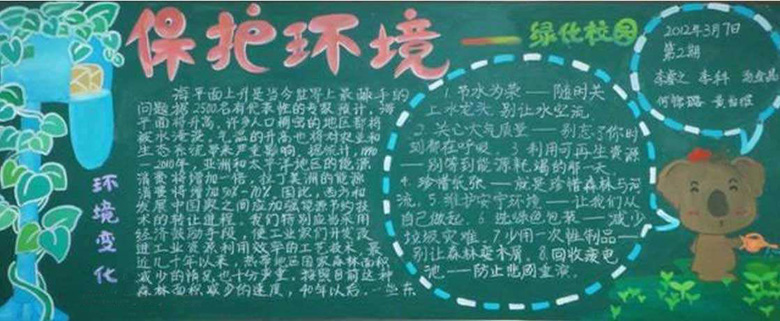 保护环境——绿化校园
2012年3月7日
第2期
环境变化
海平面上升是当今世界上最棘手的
问题据2500名有代表性的专家预计，海
平面将升高，许多人口稠密的地区都将
被水淹没。气温的升高也将对农业和
生态系统带来严重影响，据统计，1990
—2010年，亚洲和太平洋地区的能源
消费将增加一倍，拉丁美洲的能源
消费将增加50%-70%。因此，西方和
发展中国家之间应加强能源节约技
术的转让进程。我们特别应当采用
经济鼓励手段，使工业家们开发改
进工业资源利用效率的工艺技术。最
近几十年以来，热带地区国家森林面积
减少的情况也十分严重，按照目前这种
森林面积减少的速度，40年以后，一些东
1.节水为荣——随时关
上水龙头，别让水空流
2.关心大气质量——别忘了你时
刻都在呼吸 3.利用可再生资源
——别等到能源耗竭的那一天。
4.珍惜纸张——就是珍惜森林与河
流。5.维护安宁环境——让我们从
自己做起。6.选绿色包装——减少
垃圾灾难。7.少用一次性制品——
别让森林变木屑。8.回收废电
池——防止悲剧重演。